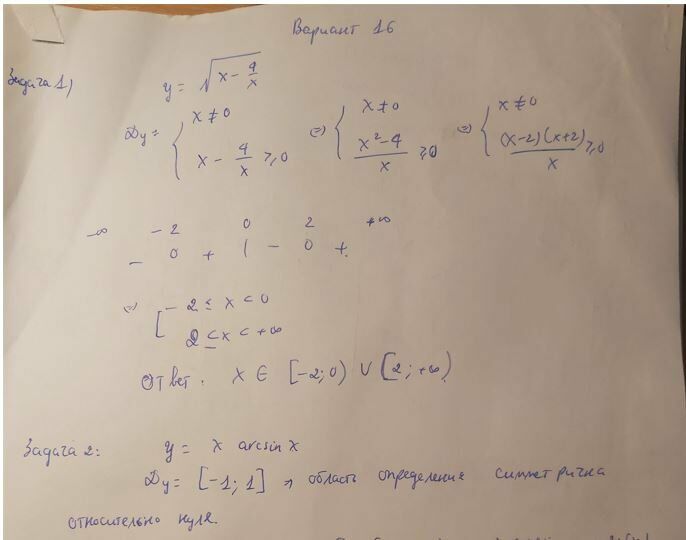 Вариант 16
Задача 1)
y = √(x - 4/x)
Dy = { x ≠ 0 ; x - 4/x ⩾ 0 ⇔ { x ≠ 0 ; (x² - 4)/x ⩾ 0 ⇔ { x ≠ 0 ; (x-2)(x+2)/x ⩾ 0
-∞ -2 0 2 +∞
- 0 + | - 0 +
⇔ [ -2 ≤ x < 0
2 ≤ x < +∞
Ответ. x ∈ [-2; 0) ∪ [2; +∞)
Задача 2: y = x arcsin x
Dy = [-1; 1] ⇒ область определения симметрична
относительно нуля.